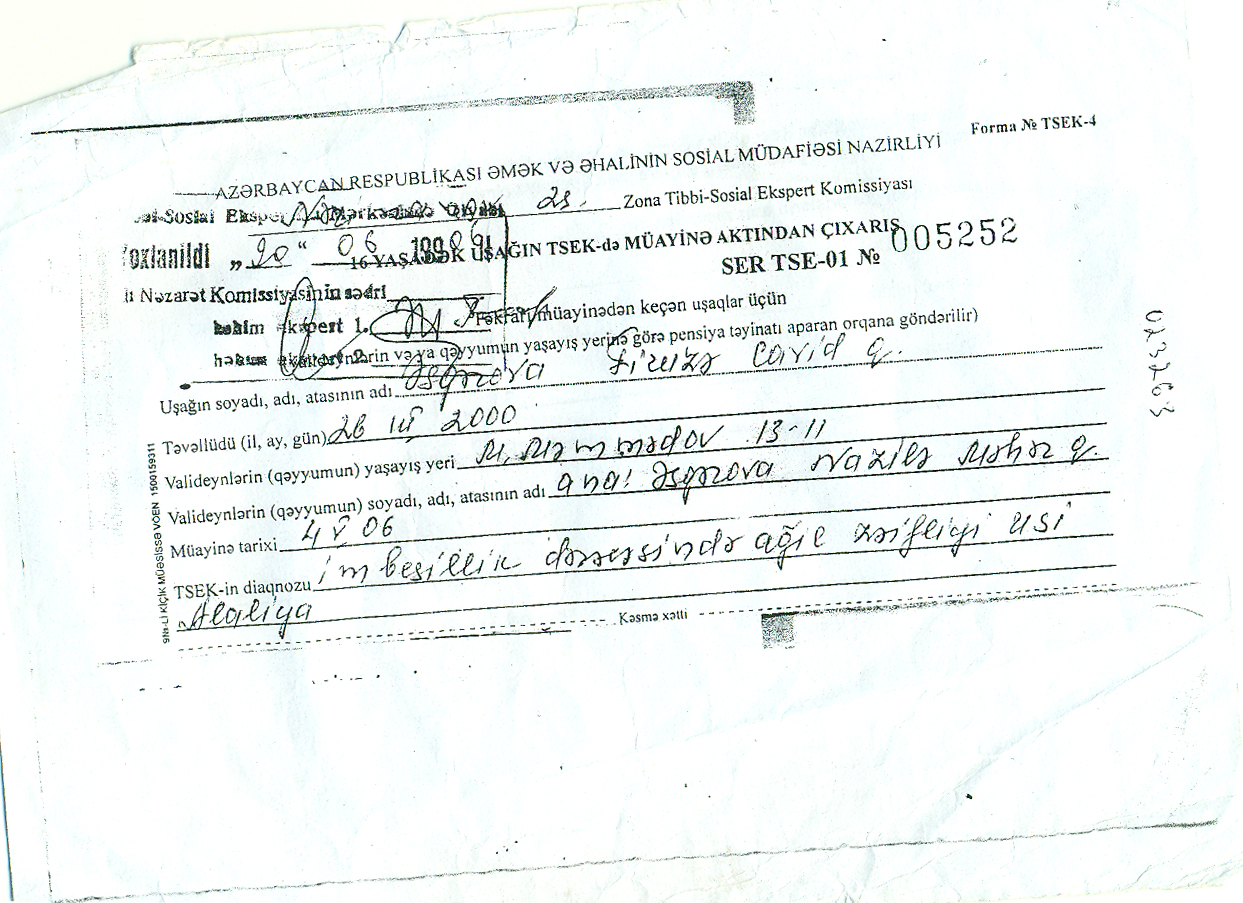 Forma № TSEK-4
AZƏRBAYCAN RESPUBLİKASI ƏMƏK VƏ ƏHALİNİN SOSİAL MÜDAFİƏSİ NAZİRLİYİ
Zona Tibbi-Sosial Ekspert Komissiyası
-Sosial Eksper
oxlanıldı „20“ 06
16 YAŞADƏK UŞAĞIN TSEK-də MÜAYİNƏ AKTINDAN ÇIXARIŞ
SER TSE-01 № 005252
Nəzarət Komissiyasinin sədri
həkim ekspert 1.
Təkrar müayinədən keçən uşaqlar üçün
həkim 2.
valideynlərin və ya qəyyumun yaşayış yerinə görə pensiya təyinatı aparan orqana göndərilir)
Uşağın soyadı, adı, atasının adı Əsgərova Firuzə Cavid q.
Təvəllüdü (il, ay, gün) 26 III 2000
Valideynlərin (qəyyumun) yaşayış yeri M. Məmmədov 13-11
Valideynlərin (qəyyumun) soyadı, adı, atasının adı ana: Əsgərova Nazilə q.
Müayinə tarixi 4 V 06
TSEK-in diaqnozu imbesillik dərəcəsində ağıl zəifliyi
Alaliya
Kəsmə xətti
9№-Lİ KİÇİK MÜƏSİSSƏ VÖEN 1500159311
023263